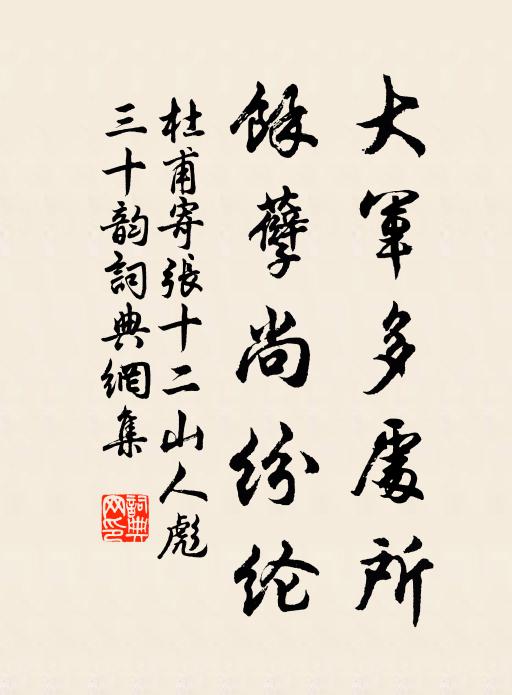 大軍多處所
餘孽尚紛纶
杜甫寄張十二山人彪
三十韵詞典網集
詞典網印